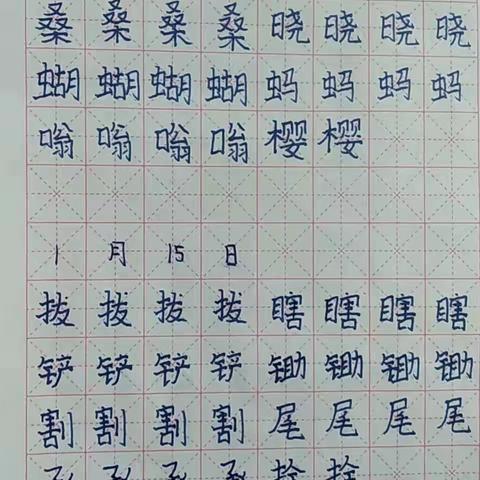 桑桑桑桑晓晓晓晓
蝴蝴蝴蝴蚂蚂蚂蚂
嗡嗡嗡嗡樱樱
1月15日
拔拔拔拔瞎瞎瞎瞎
铲铲铲铲锄锄锄锄
割割割割尾尾尾尾
拴拴